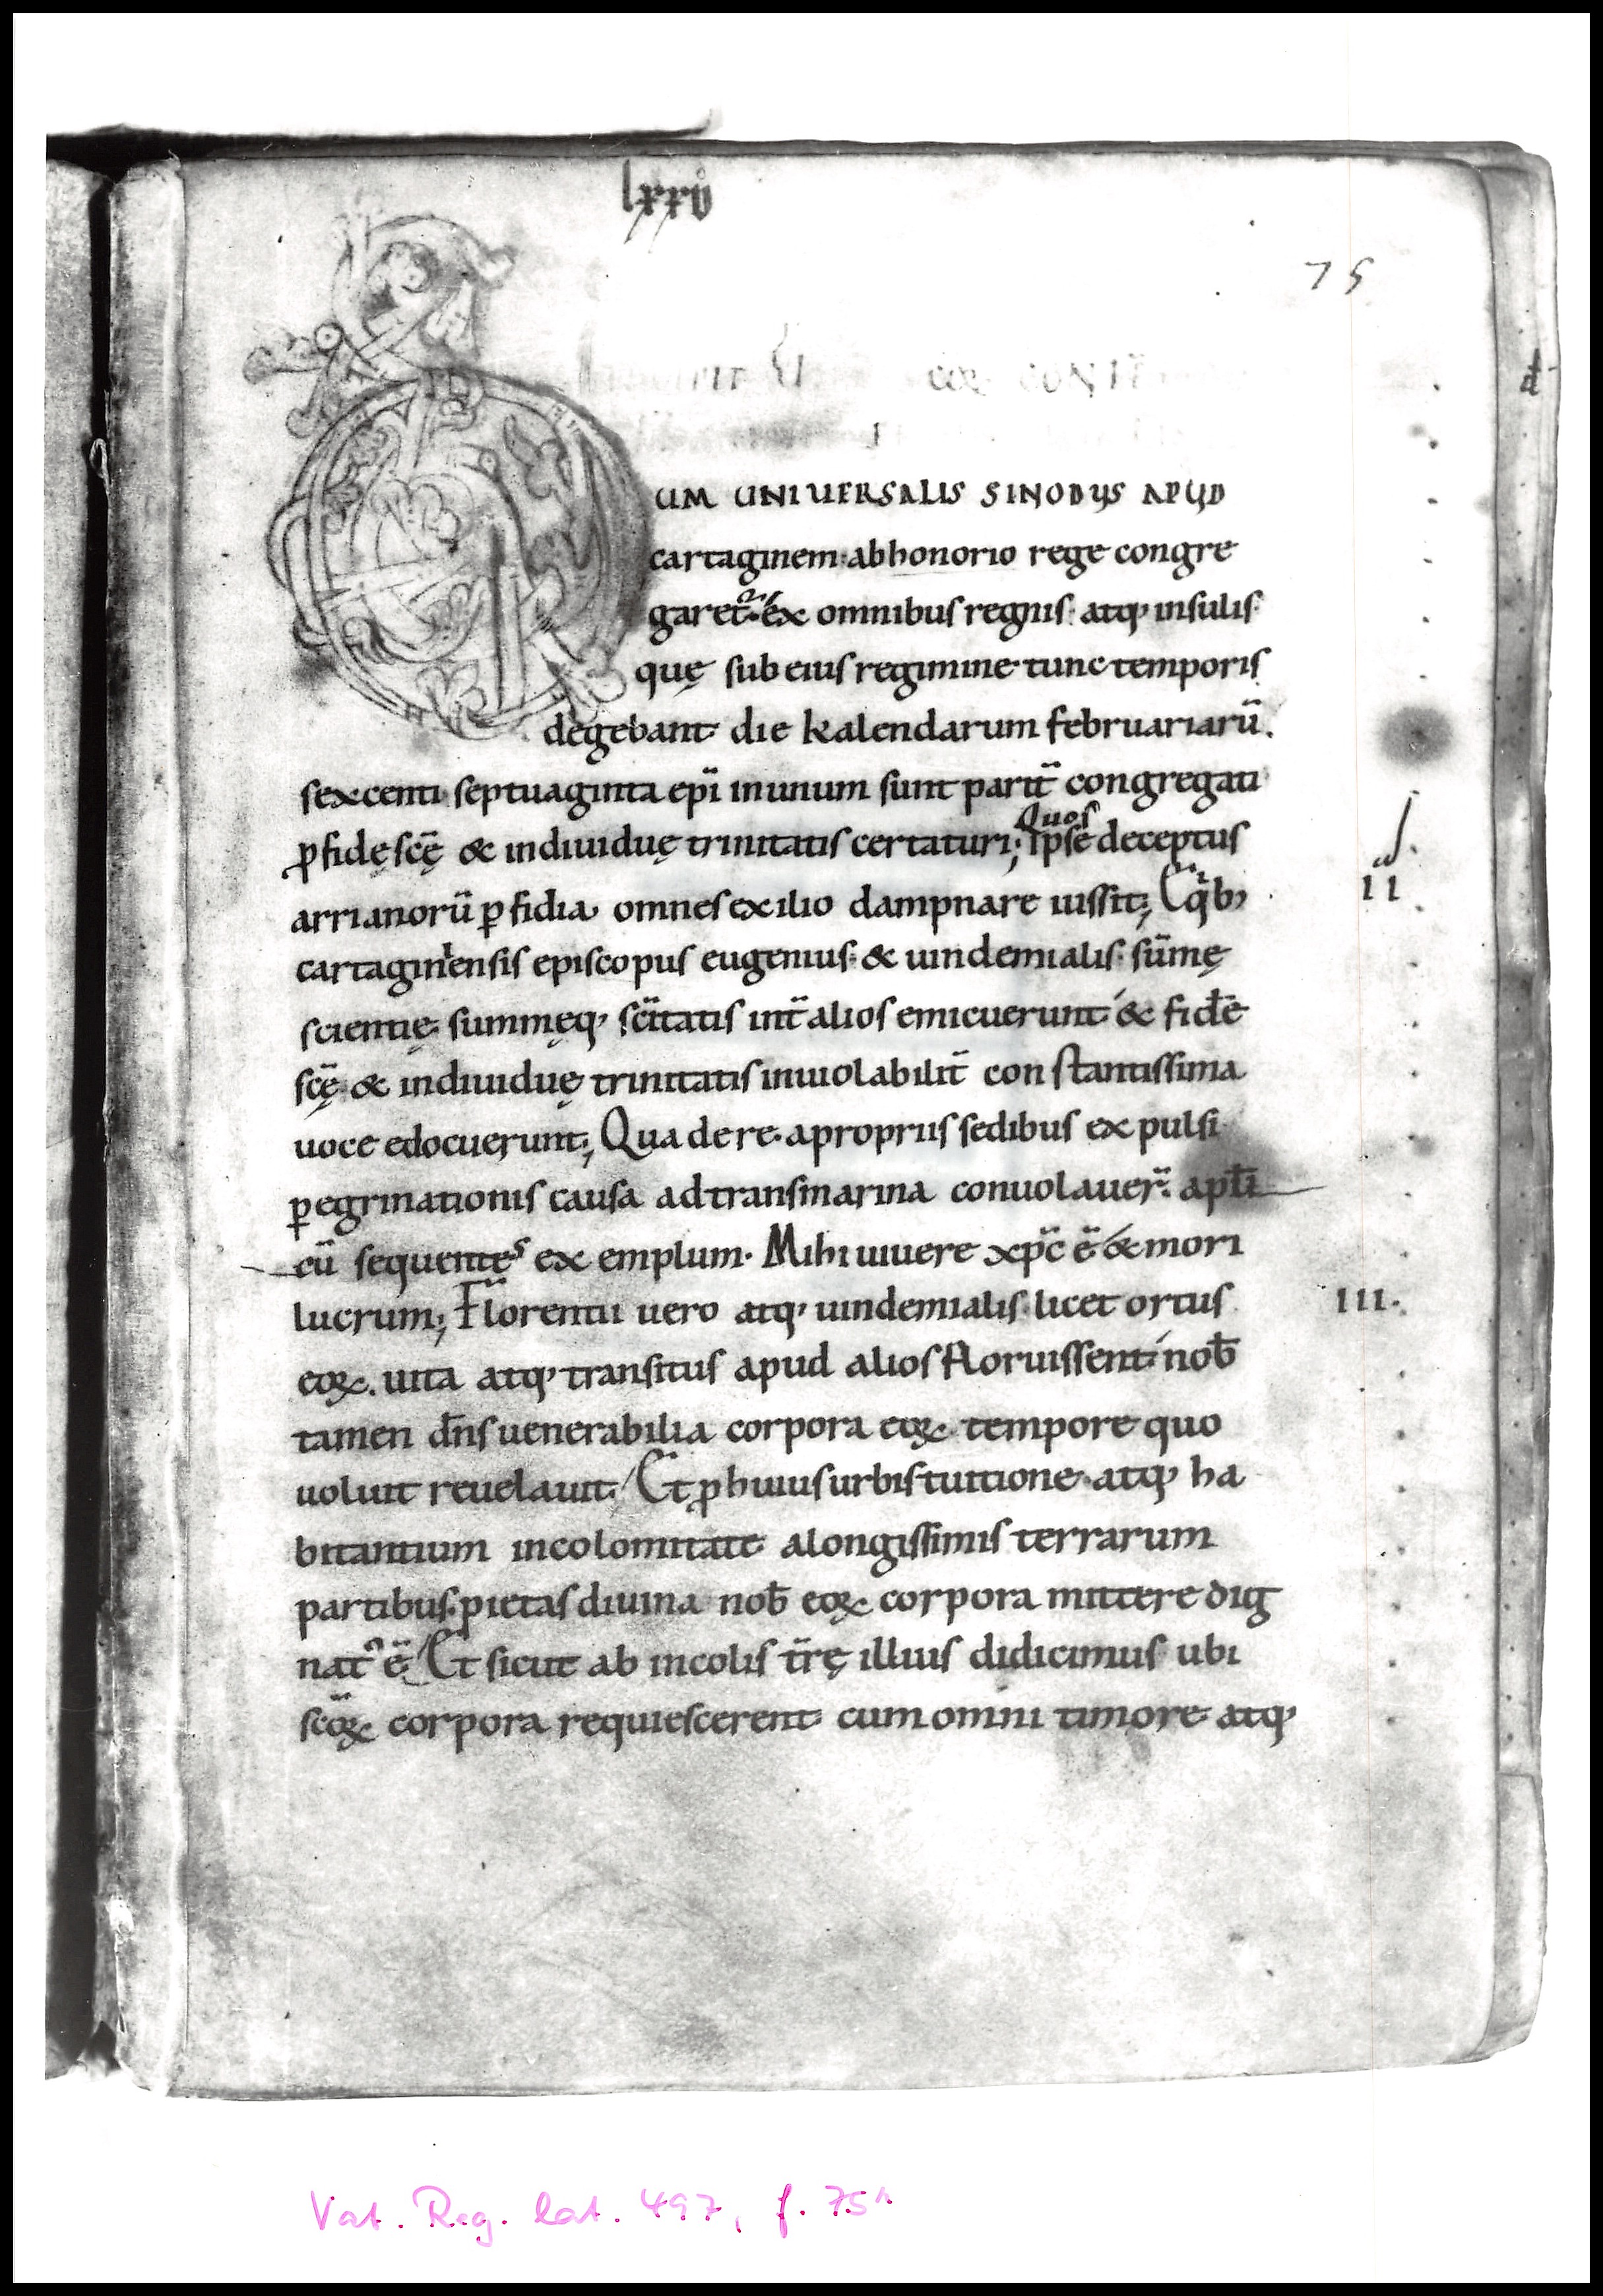 lxxv
75
UM UNIUERSALIS SINODUS APUD
cartaginem· ab honorio rege congre
garet᷑· ex omnibus regnis· atq; insulis·
quę sub eius regimine tunc temporis
degebant· die kalendarum februariarū.
sexcenti septuaginta ep̄i inunum sunt parit̄ congregati
ꝓ fidę scę̄ & indiuiduę trinitatis certaturi; Quos
Ipse deceptus
arrianorū ꝑfidia· omnes exilio dampnare iussit; E qͥb;
II
cartaginensis episcopus eugenius· & uindemialis· sūmę
scientię· summęq; sc̄itatis int̄ alios emicuerunt· & fidē
scę̄· & indiuiduę trinitatis inuiolabilit̄ constantissima
uoce edocuerunt; Qua de re· a propriis sedibus expulsi
ꝑegrinationis causa ad transmarina conuolauer̄· apl̄i
cū sequentes exemplum· Mihi uiuere xp̄c ē· & mori
lucrum; Florentii uero atq; uindemialis· licet ortus
III·
eoꝝ· uita atq; transitus apud alios floruissent· nob̄
tamen dn̄s uenerabilia corpora eoꝝ· tempore quo
uoluit reuelauit· Et ꝓ huius urbis tuitione· atq; ha
bitantium incolomitate· a longissimis terrarum
partibus· pietas diuina nob̄ eoꝝ corpora mittere dig
natꝰ ē· Et sicut ab incolis t̄rę illius didicimus ubi
sc̄oꝝ corpora requiescerent· cum omni timore· atq;
Vat. Reg. lat. 497, f. 75r